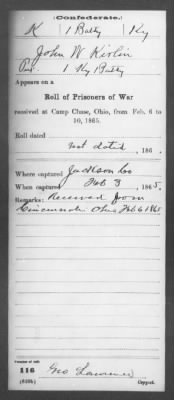 (Confederate.)
K 1 Batty Ky
John W Kirlin
Pvt. 1 Ky Batty
Appears on a
Roll of Prisoners of War
received at Camp Chase, Ohio, from Feb. 6 to
10, 1865.
Roll dated
Not dated, 186 .
Where captured Jackson Co
When captured Feb 3, 1865.
Remarks: Received from
Cincinnati Ohio Feb 6 1865
Number of roll:
116 Geo
(639b) Copyist.